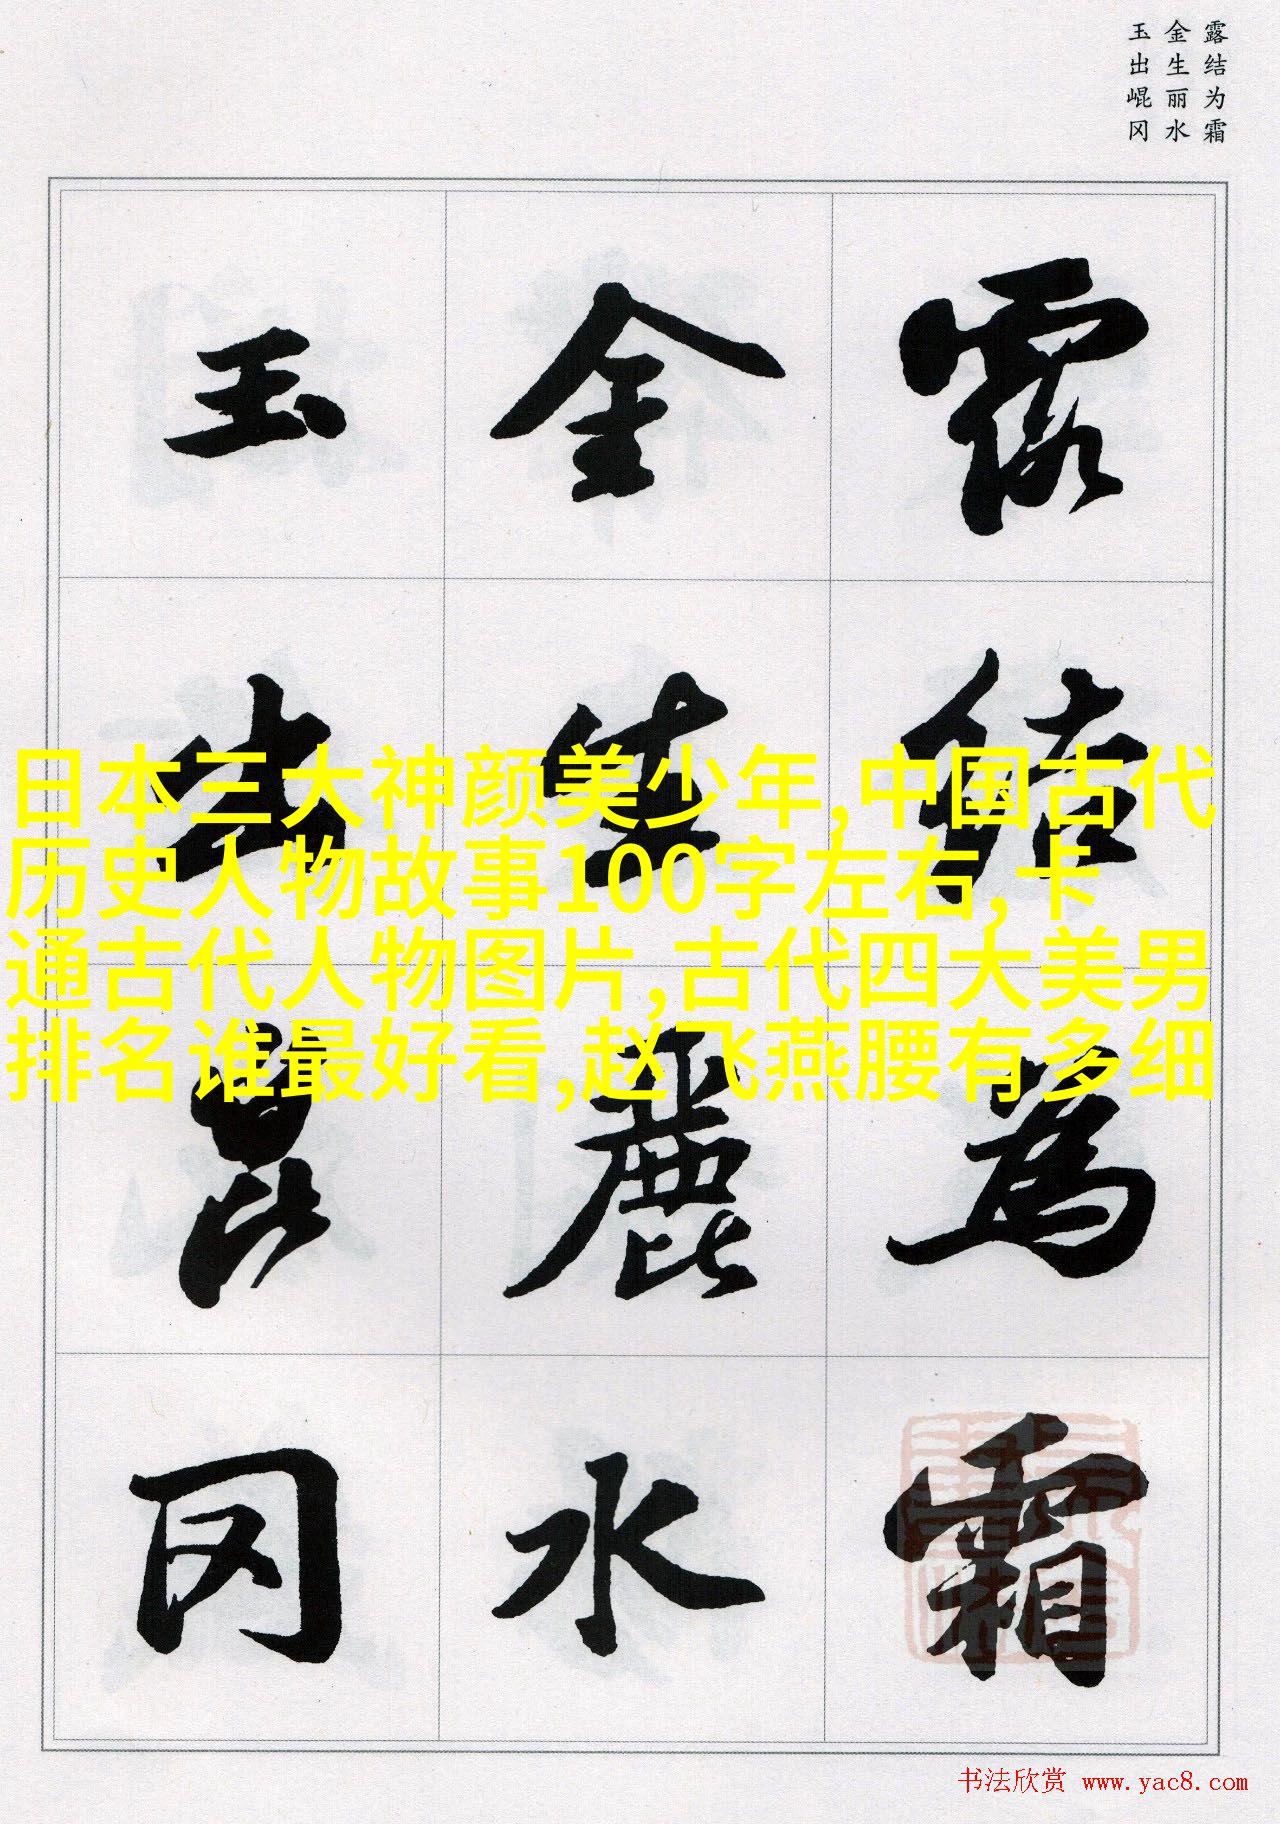 露结为霜
金生丽水
玉出崐冈
露结為霜
金生麗水
玉出崑冈
日本三大神颜美少年,中国古代
历史人物故事100字左右,卡
通古代人物图片,古代四大美男
排名谁最好看,赵飞燕腰有多细
书法欣赏 www.yac8.com